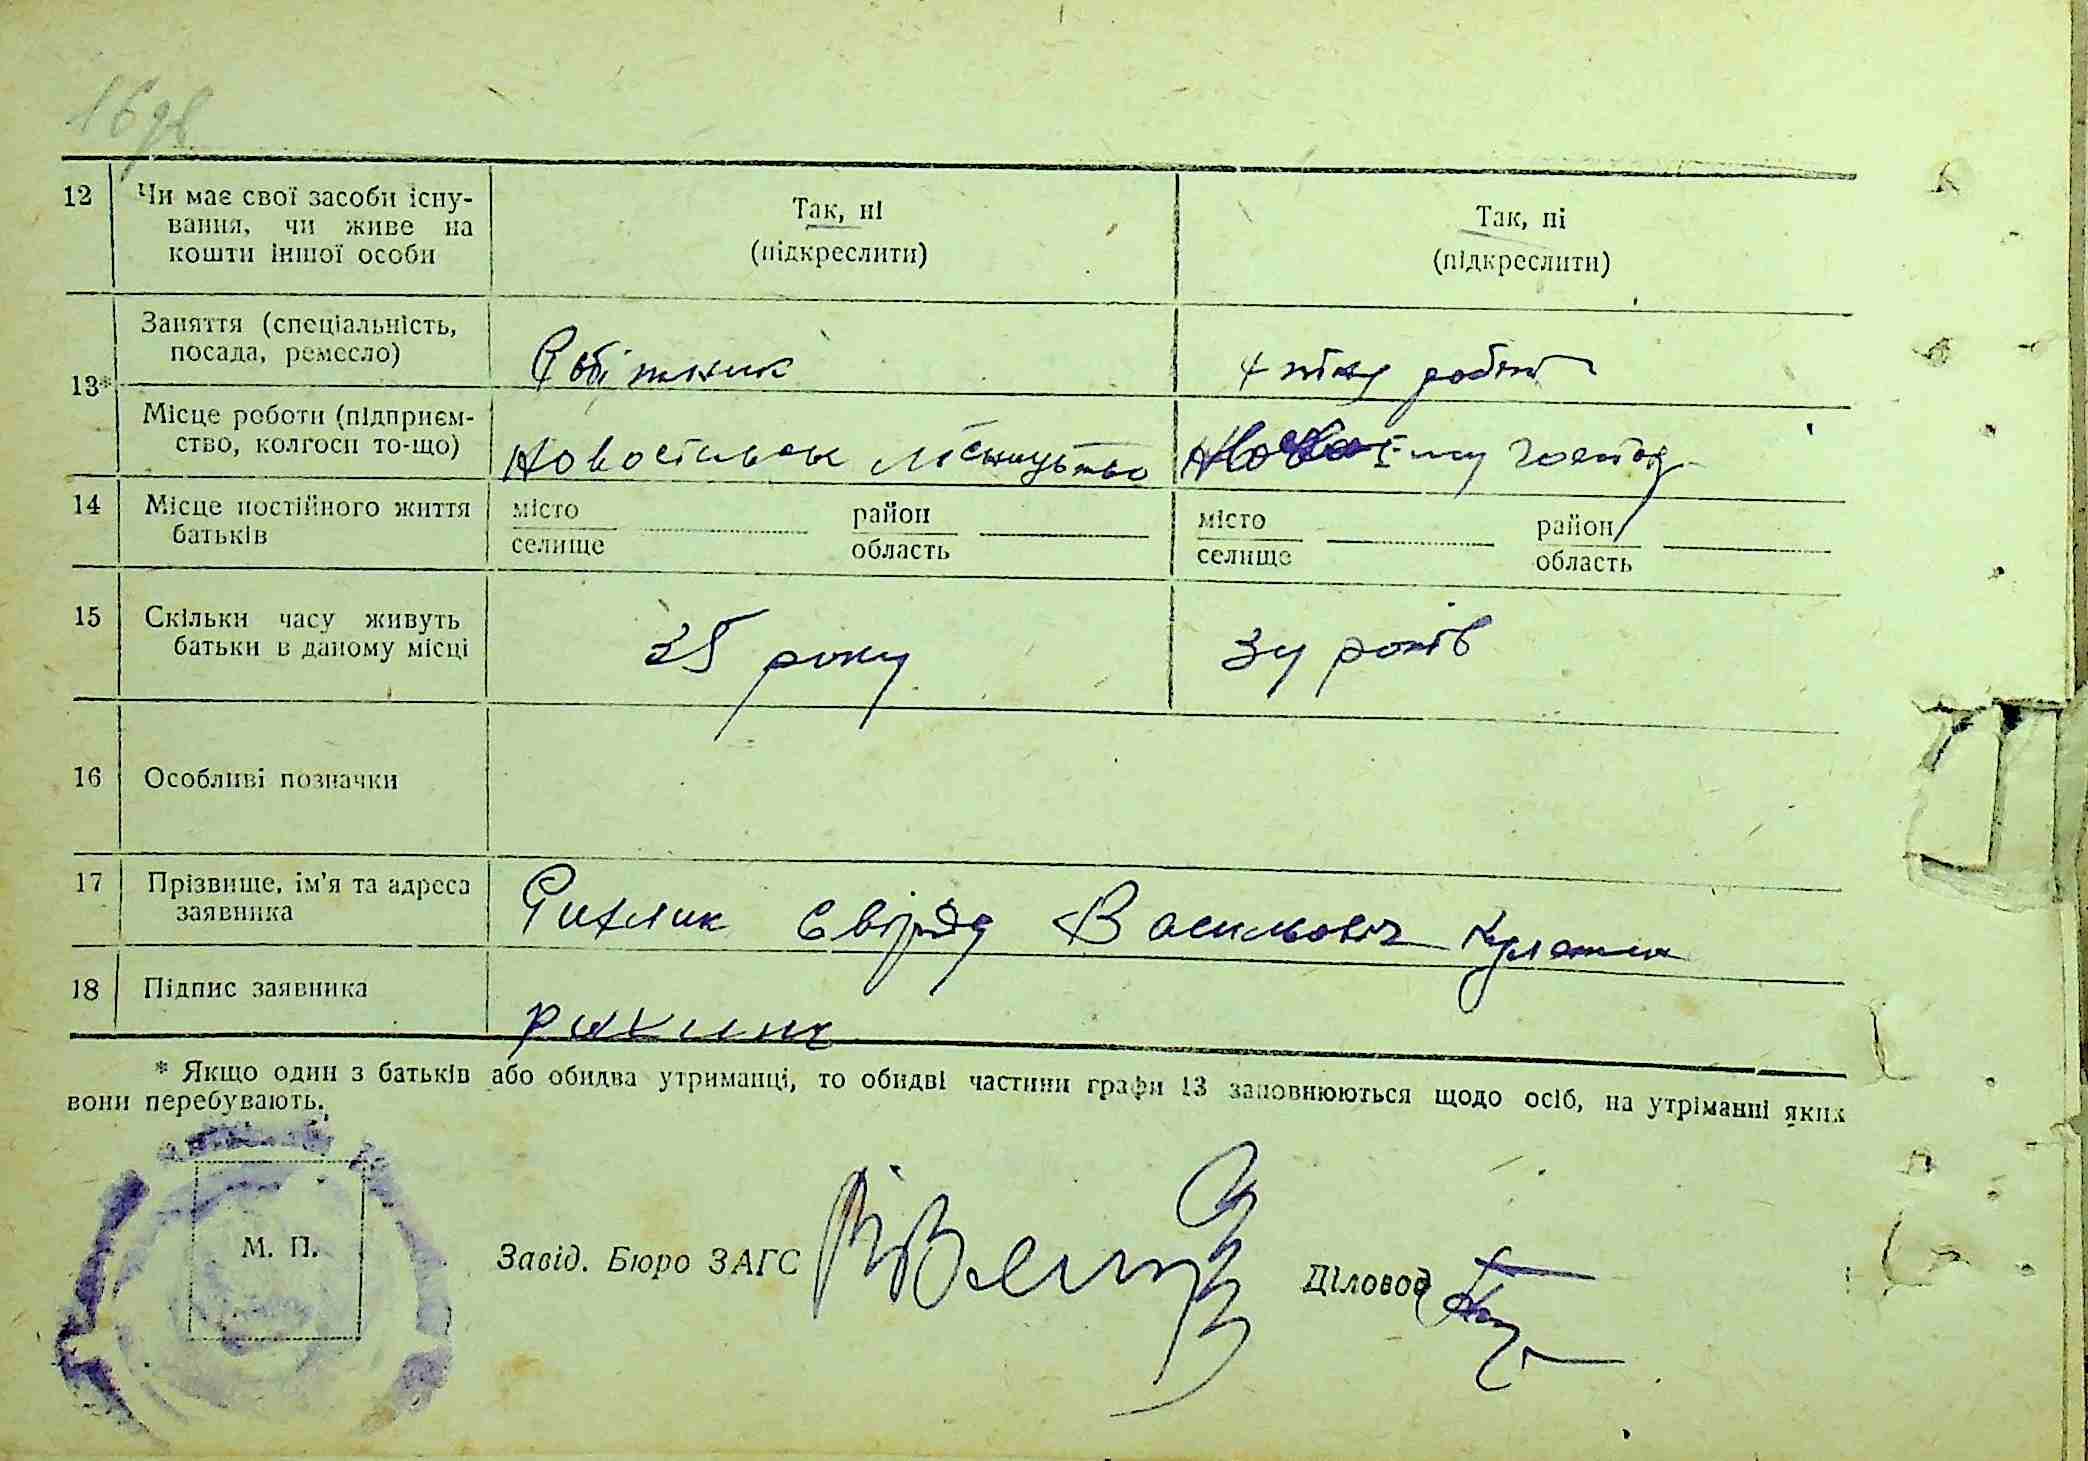 12 Чи має свої засоби існу-
вання, чи живе на
кошти іншої особи
Так, ні
(підкреслити)
Так, ні
(підкреслити)
13*
Заняття (спеціальність,
посада, ремесло)
Робітник
Місце роботи (підприєм-
ство, колгосп то-що)
лісництво
14 Місце постійного життя
батьків
місто
селище
район
область
місто
селище
район
область
15 Скільки часу живуть
батьки в даному місці
35 року
34 років
16 Особливі позначки
17 Прізвище, ім'я та адреса
заявника
Рихлик Свірид Васильовіч
18 Підпис заявника
рихлик
* Якщо один з батьків або обидва утриманці, то обидві частини графи 13 заповнюються щодо осіб, на утріманні яких
вони перебувають.
М. П.
Завід. Бюро ЗАГС
Діловод